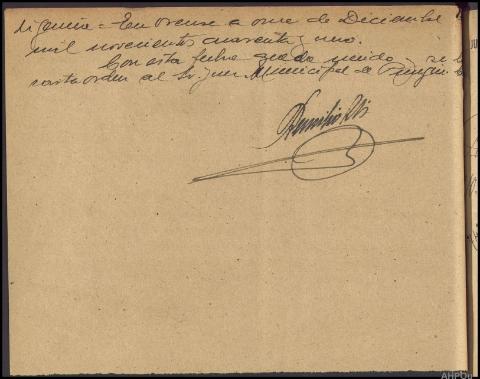 ligencia = En Orense a once de Diciembre
mil novecientos cuarenta y uno.
Con esta fecha queda unido, se
carta orden al Sr. Juez Municipal de
AHPOu